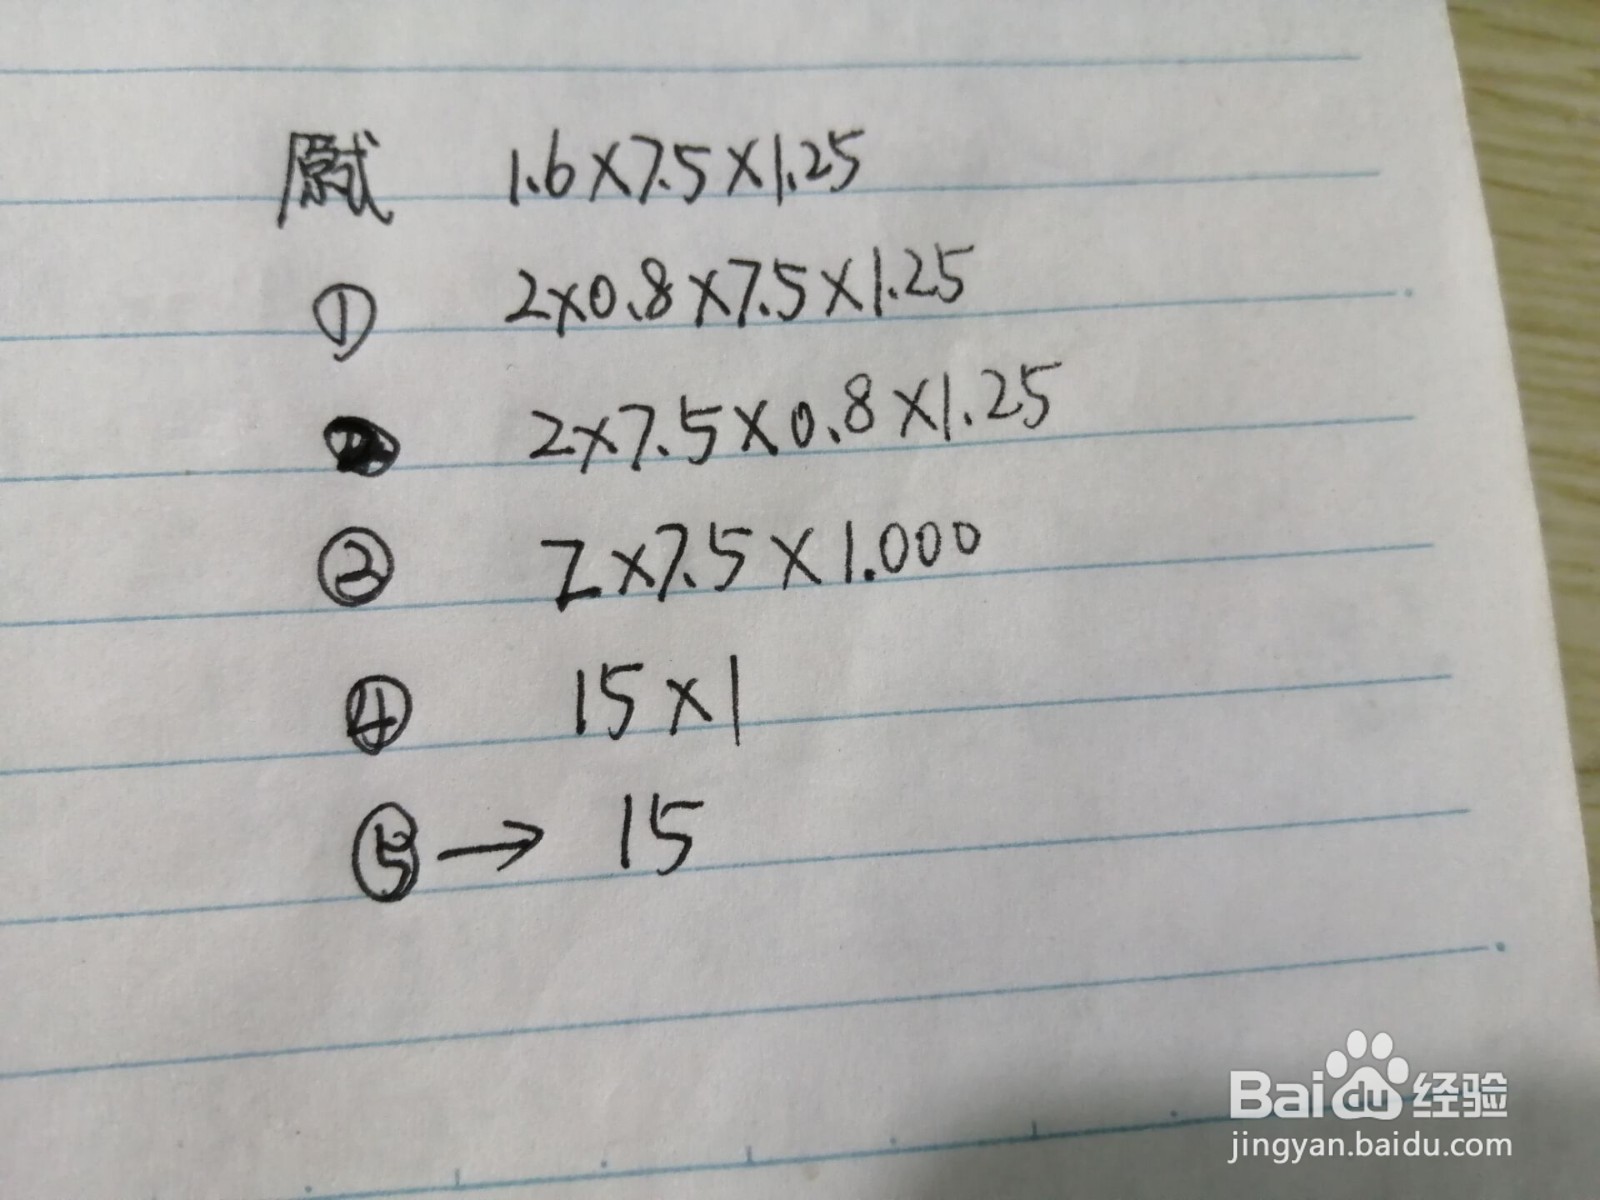 原式 1.6×7.5×1.25
① 2×0.8×7.5×1.25
2×7.5×0.8×1.25
② 2×7.5×1.000
④ 15×1
⑤→ 15
Baidu经验
jingyan.baidu.com